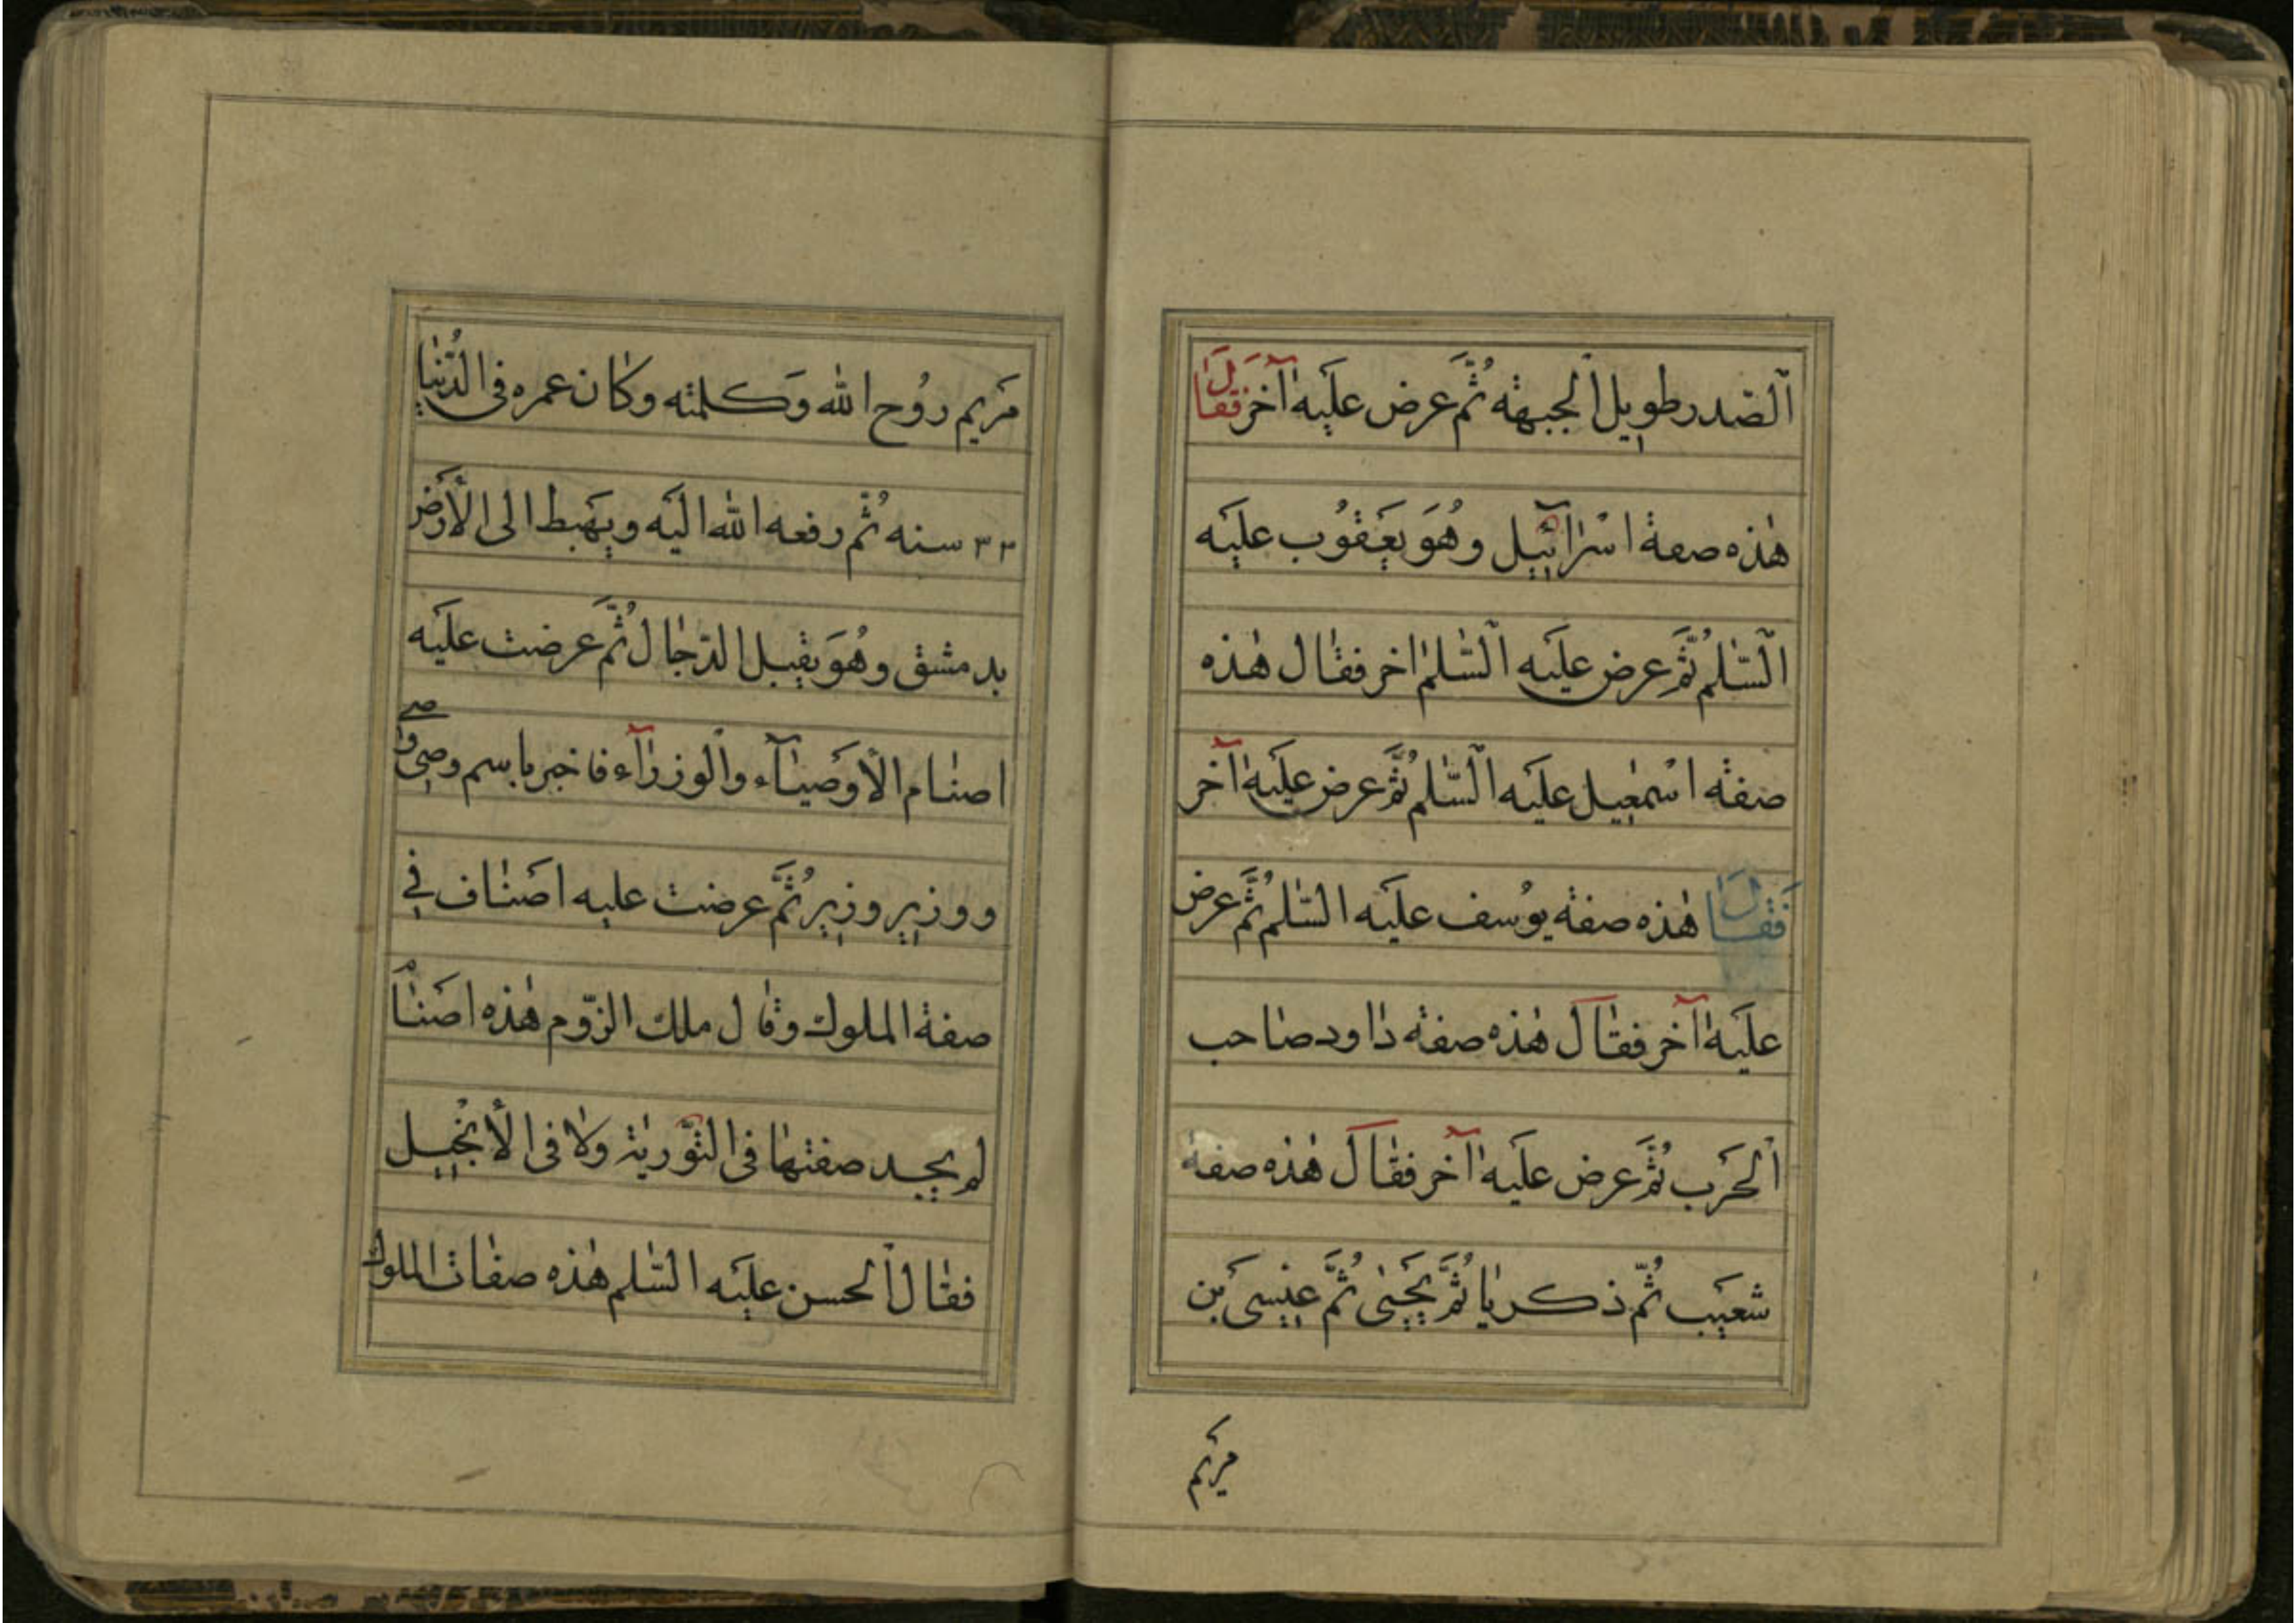 اَلصّدر طويل اَلجبهة ثُمَّ عرض عليَه آخر فقالَ
هٰذه صفة اسْرٰآئيل وهُوَ يعَقوُب عليَه
اَلسّلٰم ثُمَّ عرض عليَه اَلسّلٰم اخر فقٰال هٰذه
صفة اسْمٰعيل عليَه اَلسّلٰم ثُمَّ عرض عليَه آخر
فَقٰالَ هٰذه صفة يوُسف عليَه السّلٰم ثُمَّ عرض
عليَه آخر فقٰالَ هٰذه صفة دٰاود صٰاحب
اَلحرَب ثُمَّ عرض عليَه آخر فقٰالَ هٰذه صفة
شعيَب ثُمّ ذكريٰا ثُمَّ يحَيٰى ثُمَّ عيٖسىَ بن
مريَم
مَريم روُح الله وَكلمته وكٰان عمره فى الدُّنيٰا
٣٣ سنه ثُمّ رفعه الله اليَه ويهَبط الى الأرَض
بدمشق وهُوَ يقبل الدّجٰال ثُمَّ عرضت عليَه
اصنٰام الأوَصيٰآء واَلوزرٰآء فاخبر باسم وصى وصى
ووزير وزير ثُمَّ عرضت عليه اصَنٰاف فى
صفة الملوك وقٰال ملك الرّوم هٰذه اصَنٰام
لم يجد صفتهٰا فى التّوَريٰة ولٰا فى الأنجيل
فقٰال اَلحسن عليَه السّلٰم هٰذه صفٰات الملوك